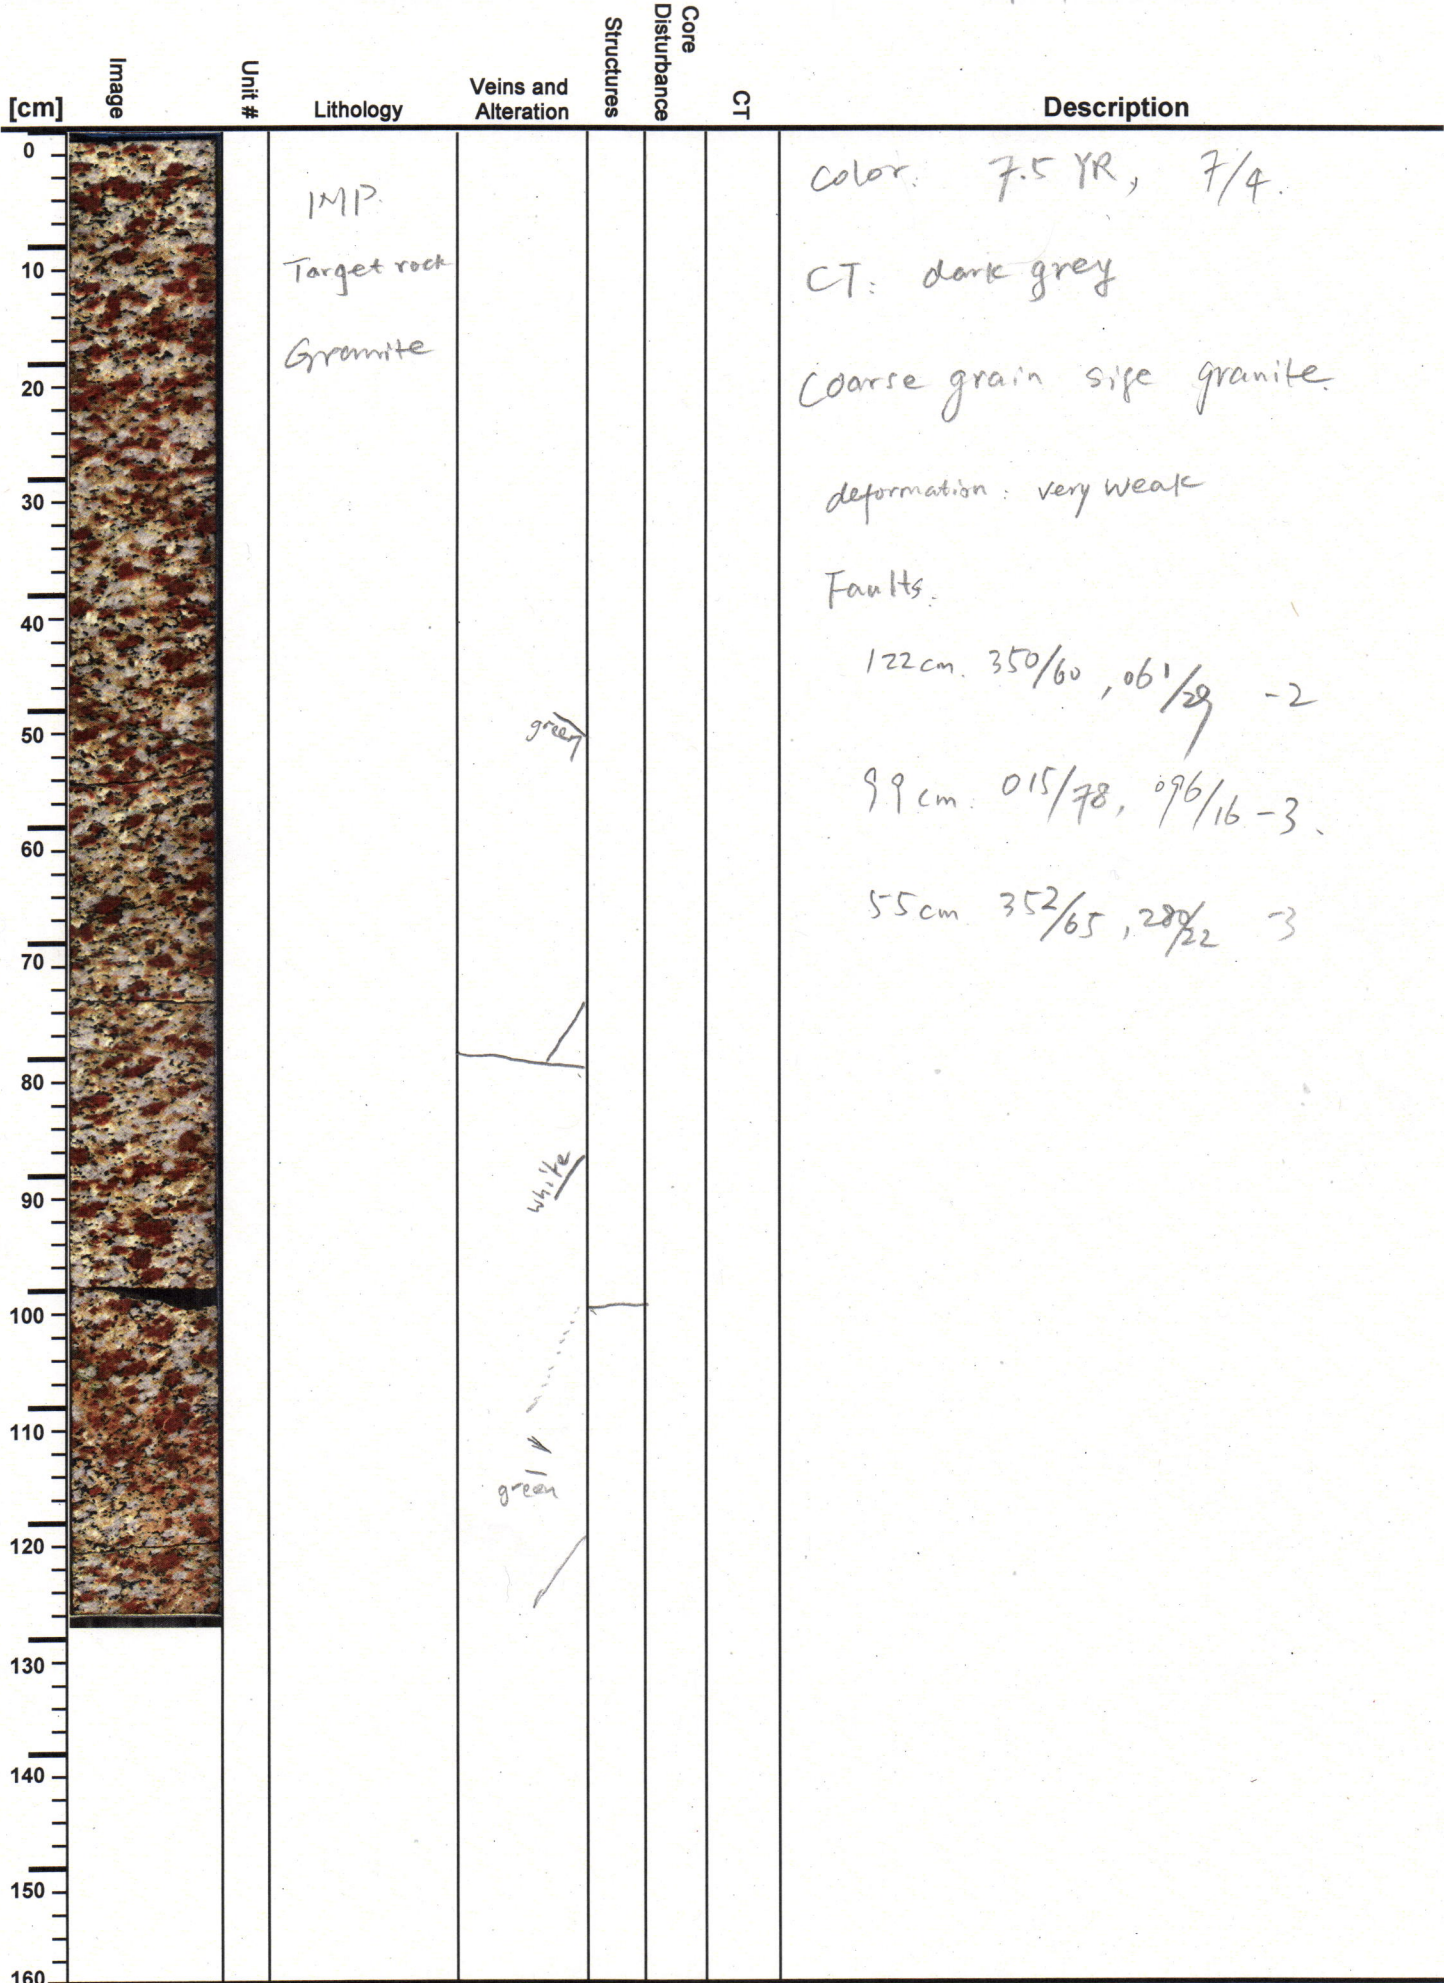 [cm]
Image
Unit #
Lithology
Veins and
Alteration
Structures
Core
Disturbance
CT
Description
0
10
20
30
40
50
60
70
80
90
100
110
120
130
140
150
160
IMP.
Target rock
Granite
green
white
green
Color: 7.5 YR, 7/4.
CT: dark grey
Coarse grain size granite.
deformation: very weak
Faults.
122 cm. 350/60, 061/29 -2
99 cm. 015/78, 096/16 -3.
55 cm 352/65, 280/22 -3